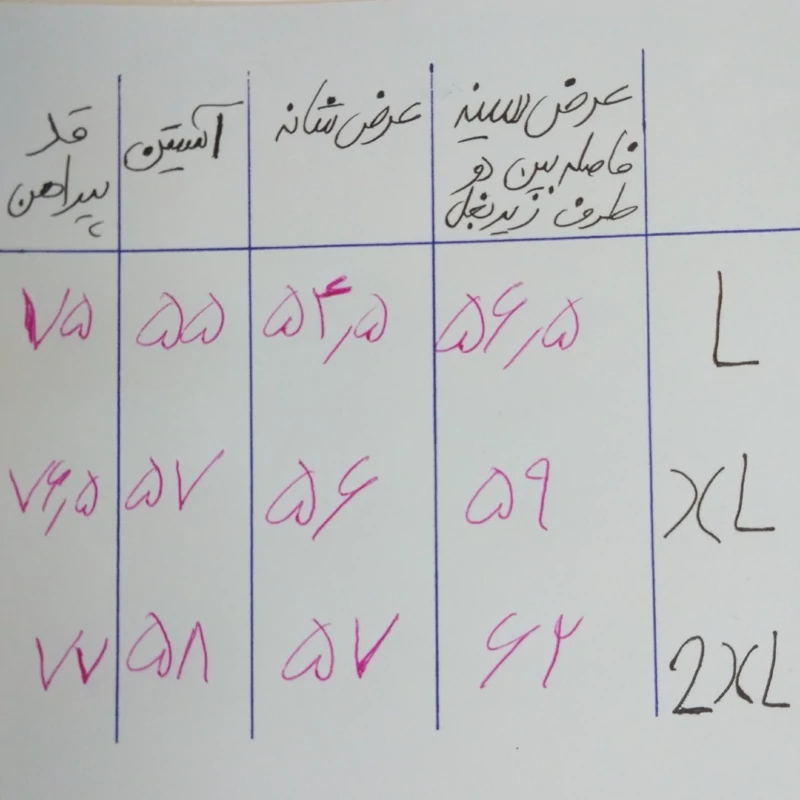 عرض سینه
فاصله بین دو
طرف زیر بغل
عرض شانه
آستین
قد
پیراهن
L ۵۶٫۵ ۵۴٫۵ ۵۵ ۷۵
XL ۵۹ ۵۶ ۵۷ ۷۶٫۵
2XL ۶۲ ۵۷ ۵۸ ۷۷